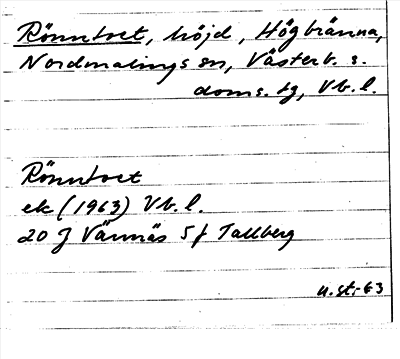 Rönntvet, höjd, Högbränna,
Nordmalings sn, Västerb. s.
doms. tg, Vb. l.
Rönntvet
ek (1963) Vb. l.
20 J Vännäs 5 f Tallberg
u. st. 63